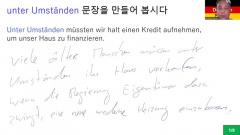 unter Umständen 문장을 만들어 봅시다
Unter Umständen müssten wir halt einen Kredit aufnehmen,
um unser Haus zu finanzieren.
viele älter Menschen müssen unter
Umständen ihr Haus verkaufen,
wenn die Regierung Eigentümer dazu
zwingt, eine neue Heizung einzubauen.